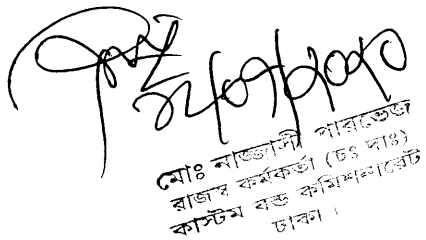 মোঃ নাজ্জাসী পারভেজ
রাজস্ব কর্মকর্তা (চঃ দাঃ)
কাস্টম বন্ড কমিশনারেট
ঢাকা।